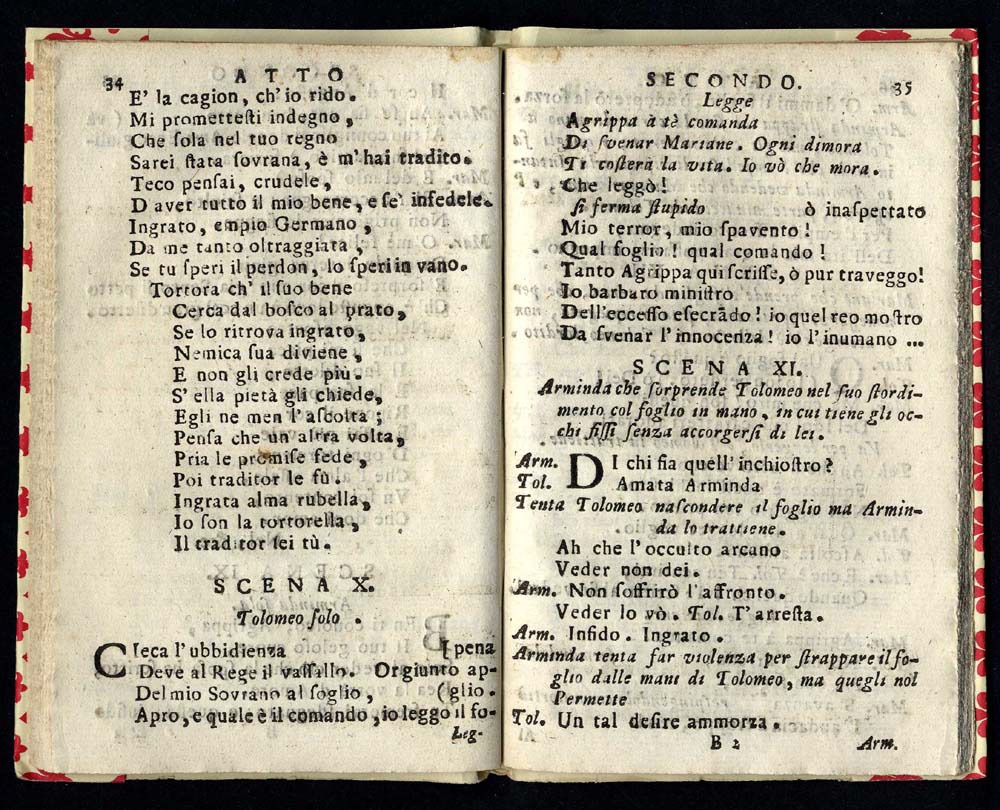 34 ATTO
E' la cagion, ch' io rido.
Mi promettesti indegno,
Che ſola nel tuo regno
Sarei ſtata ſovrana, è m' hai tradito.
Teco penſai, crudele,
D aver tutto il mio bene, e ſe' infedele.
Ingrato, empio Germano,
Da me tanto oltraggiata,
Se tu ſperi il perdon, lo ſperi in vano.
Tortora ch' il ſuo bene
Cerca dal boſco al prato,
Se lo ritrova ingrato,
Nemica ſua diviene,
E non gli crede più.
S' ella pietà gli chiede,
Egli ne men l' aſcolta;
Penſa che un' altra volta,
Pria le promiſe fede,
Poi traditor le fù.
Ingrata alma rubella,
Io ſon la tortorella,
Il traditor ſei tù.
SCENA X.
Tolomeo ſolo.
CIeca l' ubbidienza [pena
Deve al Rege il vaſſallo. Or giunto ap-
Del mio Sovrano al foglio, (glio.
Apro, e quale è il comando, io leggo il fo-
Leg-
SECONDO. 35
Legge
Agrippa à tè comanda
Di ſvenar Mariane. Ogni dimora
Ti coſterà la vita. Io vò che mora.
Che leggò!
ſi ferma ſtupido ò inaſpettato
Mio terror, mio ſpavento!
Qual foglio! qual comando!
Tanto Agrippa qui ſcriſſe, ò pur traveggo!
Io barbaro miniſtro
Dell' ecceſſo eſecrādo! io quel reo moſtro
Da ſvenar l' innocenza! io l' inumano ...
SCENA XI.
Arminda che ſorprende Tolomeo nel ſuo ſtordi-
mento col foglio in mano, in cui tiene gli oc-
chi fiſſi ſenza accorgerſi di lei.
Arm. DI chi fia quell' inchioſtro?
Tol. Amata Arminda
Tenta Tolomeo naſcondere il foglio ma Armin-
da lo trattiene.
Ah che l' occulto arcano
Veder non dei.
Arm. Non ſoffrirò l' affronto.
Veder lo vò. Tol. T' arreſta.
Arm. Infido. Ingrato.
Arminda tenta far violenza per ſtrappare il fo-
glio dalle mani di Tolomeo, ma quegli nol
Permette
Tol. Un tal deſire ammorza.
B 2 Arm.